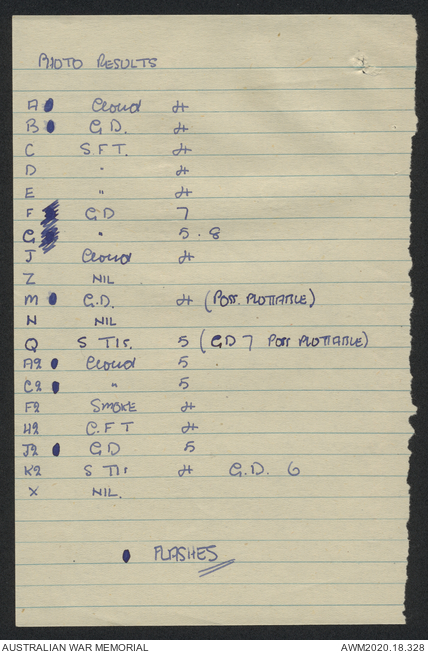 PHOTO RESULTS
A Cloud 4
B G.D. 4
C S.F.T. 4
D " 4
E " 4
F GD 7
G " 5.8
J Cloud 4
Z NIL
M G.D. 4 (POSS. PLOTTABLE)
N NIL
Q S TIs. 5 (GD 7 POSS PLOTTABLE)
A2 Cloud 5
C2 " 5
F2 SMOKE 4
H2 C.F.T 4
J2 GD 5
K2 S TIs 4 G.D. 6
X NIL.
FLASHES
AUSTRALIAN WAR MEMORIAL AWM2020.18.328